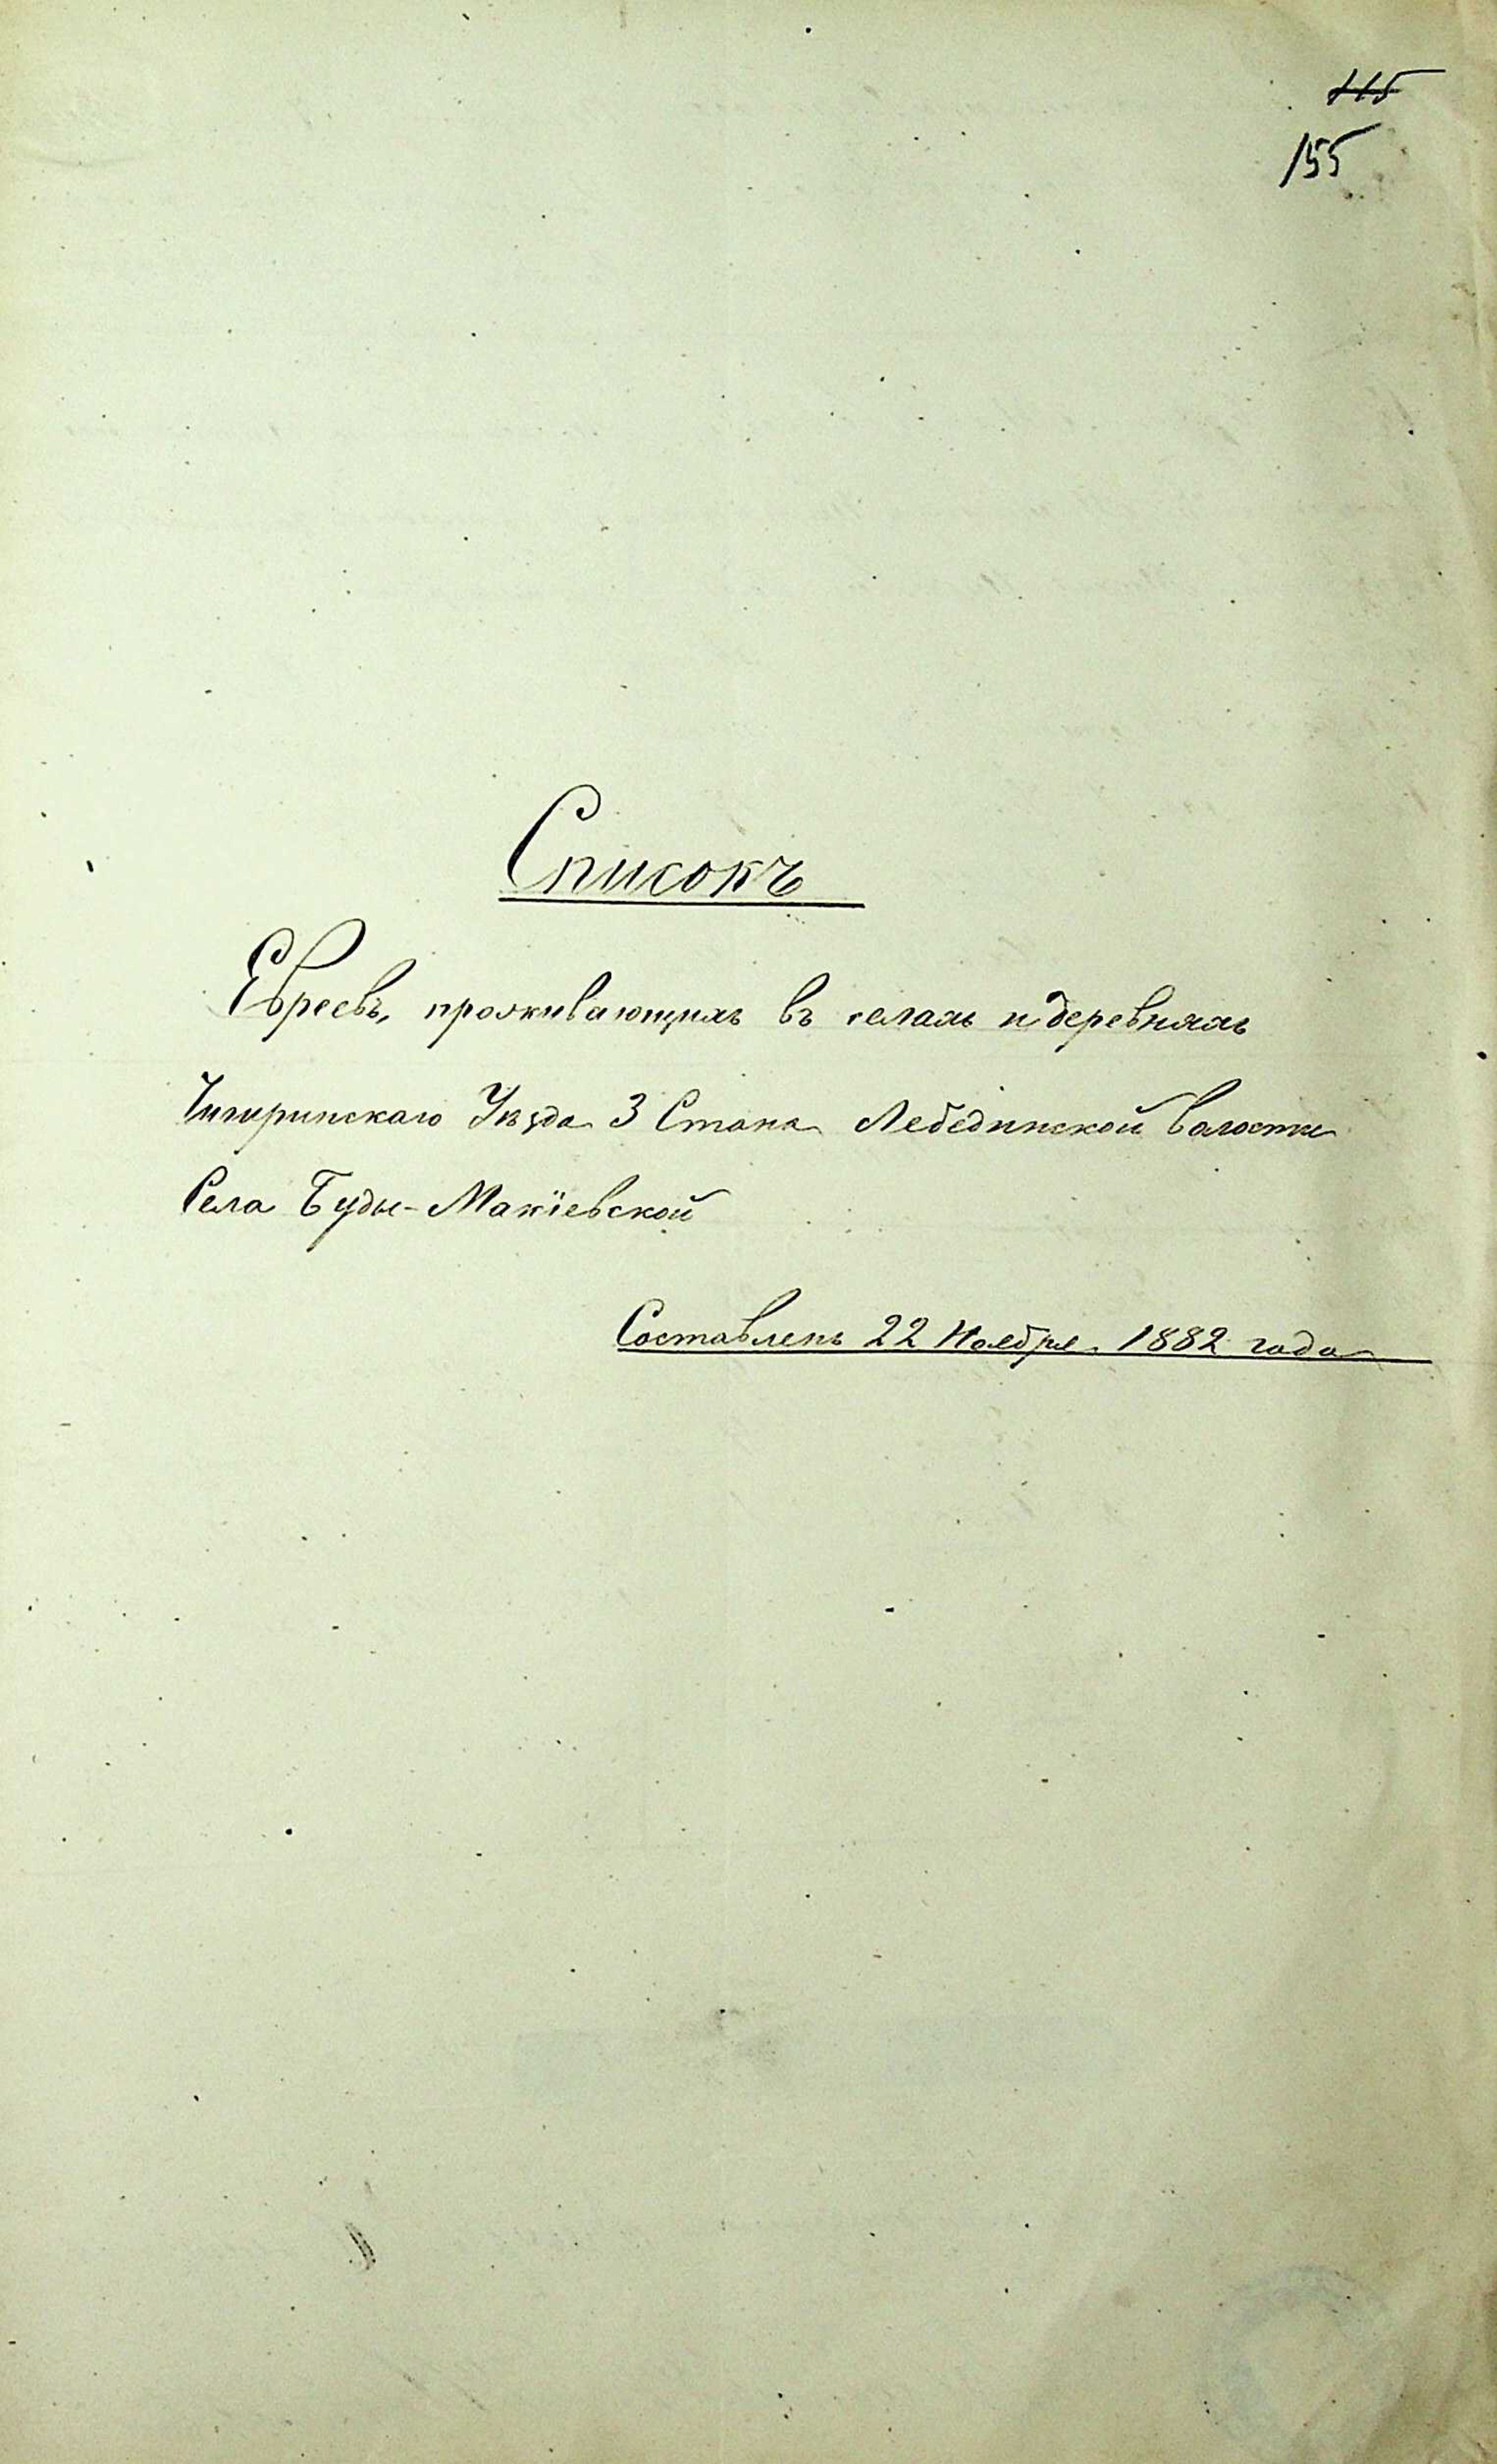 115
155
Списокъ
Евреевъ, проживающихъ въ селахъ и деревняхъ
Чигиринскаго Уѣзда 3 Стана Лебединской волости
Села Буды-Макіевской
Составленъ 22 Ноября 1882 года